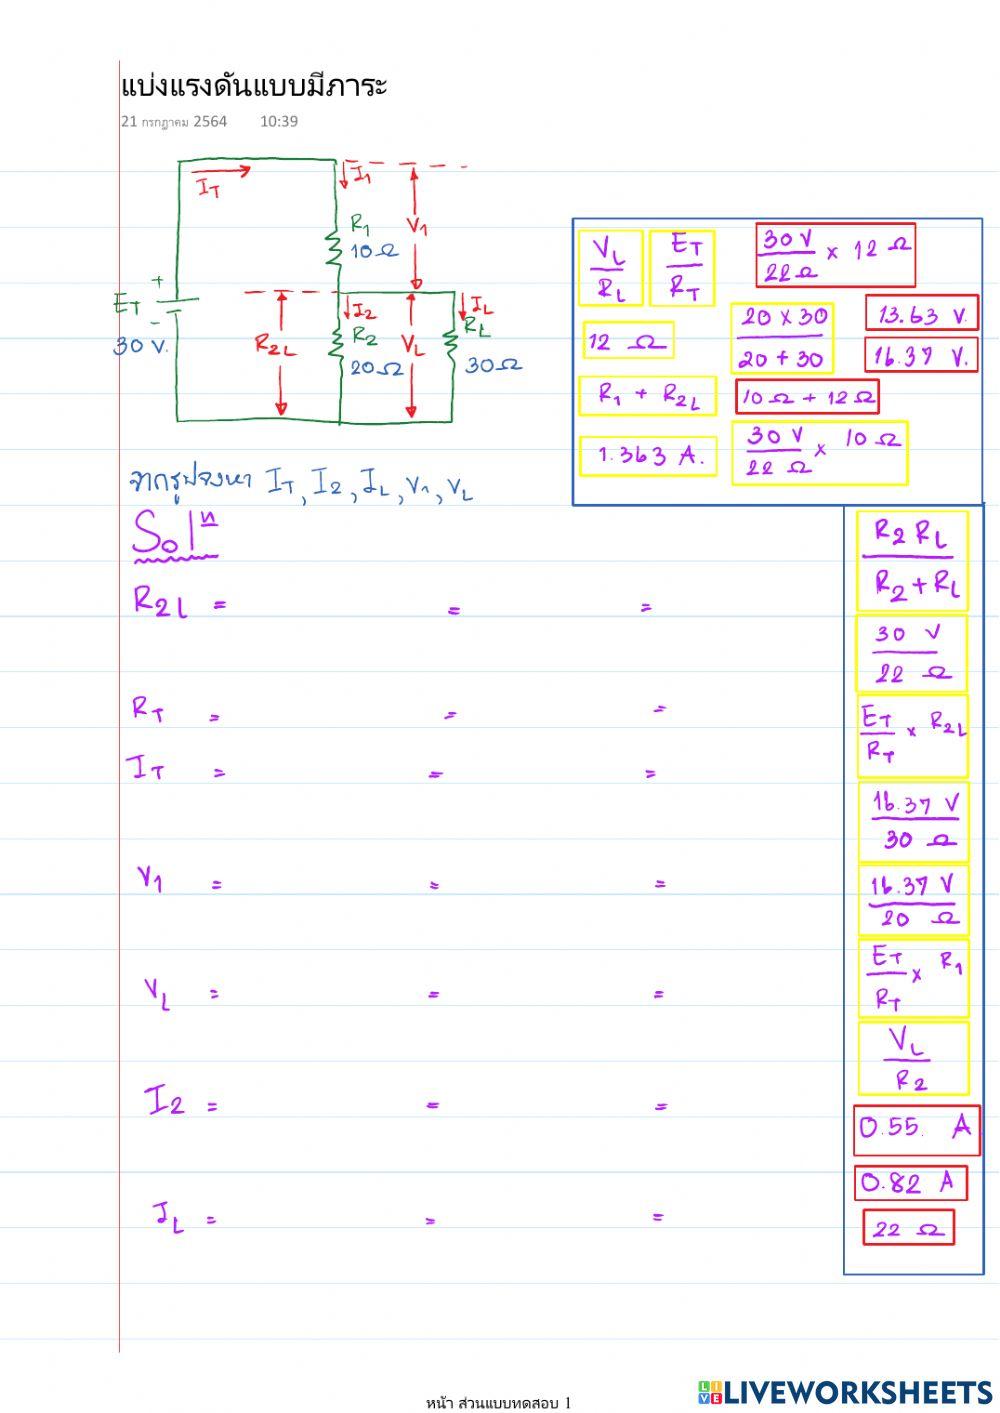 แบ่งแรงดันแบบมีภาระ
21 กรกฎาคม 2564 10:39
IT
I1
R1
10 Ω
V1
+
ET
-
30 V.
R2L
I2
R2
20 Ω
VL
IL
RL
30 Ω
จากรูปจงหา IT, I2, IL, V1, VL
VL/RL
ET/RT
30 V/22 Ω × 12 Ω
12 Ω
20 × 30/20 + 30
13.63 V.
16.37 V.
R1 + R2L
10 Ω + 12 Ω
1.363 A.
30 V/22 Ω × 10 Ω
Solⁿ
R2L = = =
RT = = =
IT = = =
V1 = = =
VL = = =
I2 = = =
IL = = =
R2 RL/R2 + RL
30 V/22 Ω
ET/RT × R2L
16.37 V/30 Ω
16.37 V/20 Ω
ET/RT × R1
VL/R2
0.55. A
0.82 A
22 Ω
หน้า ส่วนแบบทดสอบ 1
LIVE LIVEWORKSHEETS